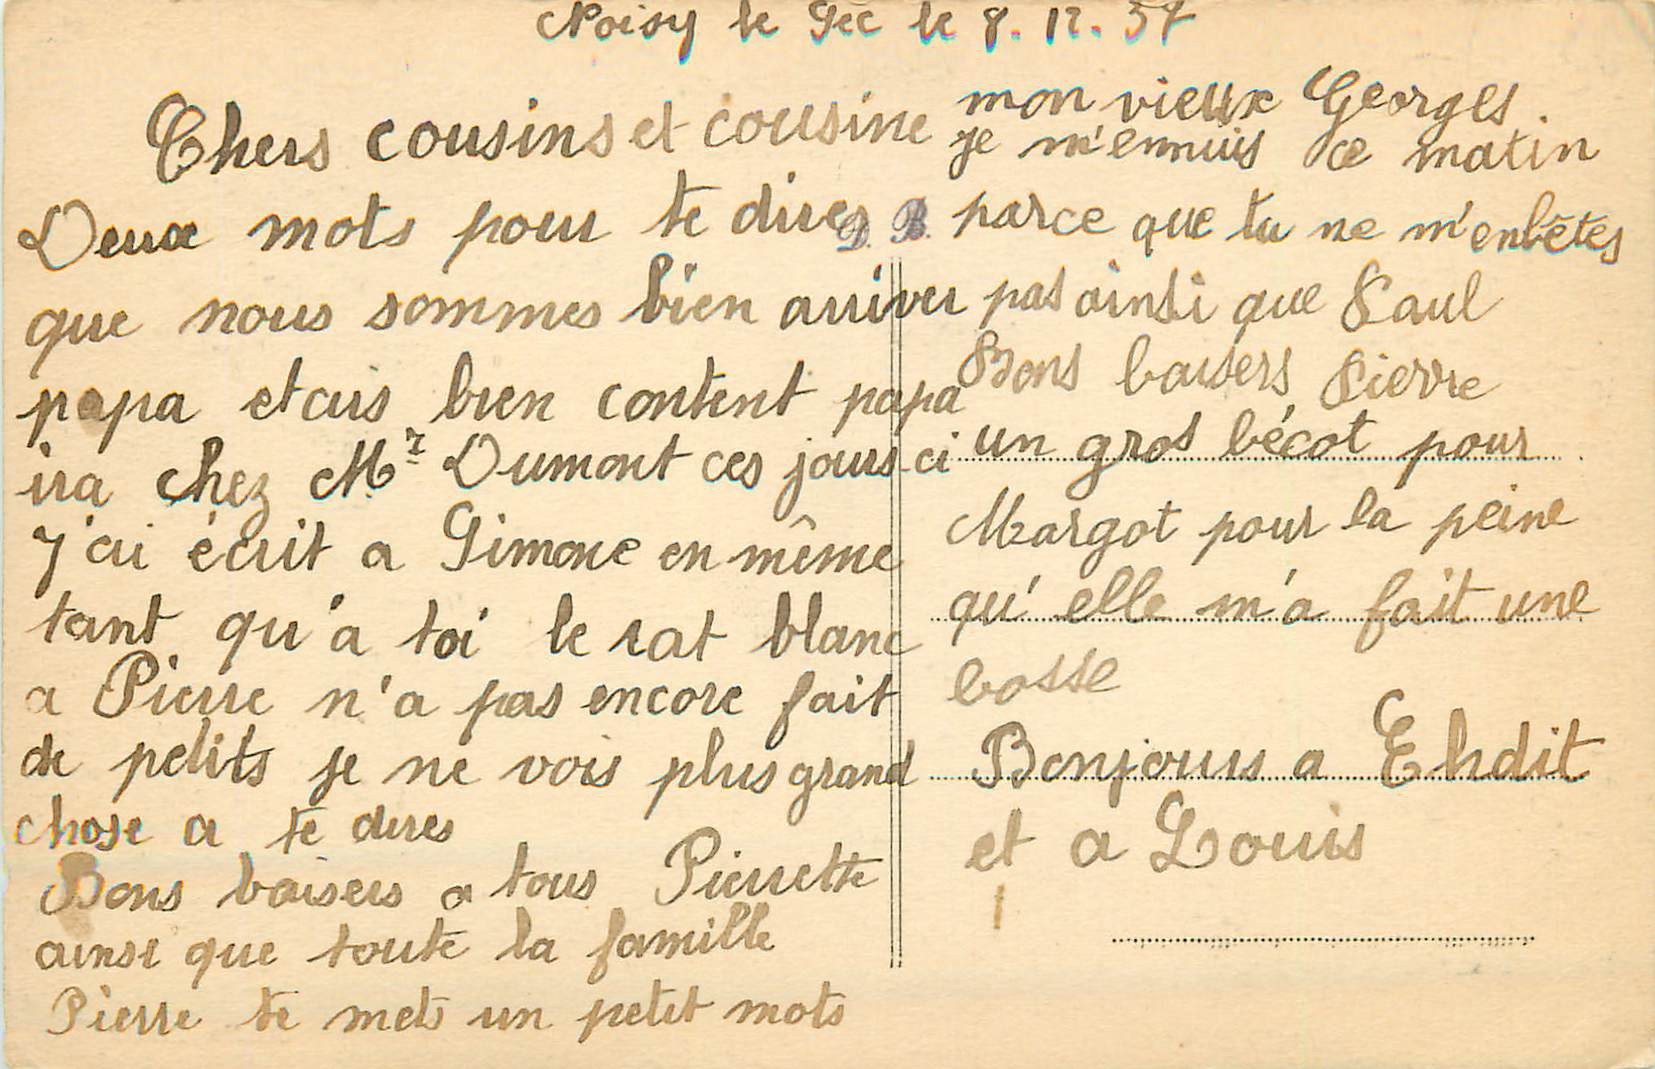 Noisy le Sec le 8. 12. 37
Chers cousins et cousine
Deux mots pour te dires
que nous sommes bien arriver
papa etais bien content papa
ira chez Mr Dumont ces jours-ci
J'ai écrit a Simone en même
tant qu'a toi le rat blanc
a Pierre n'a pas encore fait
de petits je ne vois plus grand
chose a te dires
Bons baisers a tous Pierrette
ainsi que toute la famille
Pierre te mets un petit mots
D. B.
mon vieux Georges.
je m'ennuis ce matin
parce que tu ne m'enbêtes
pas ainsi que Paul
Bons baisers Pierre
un gros bécot pour
Margot pour la peine
qu'elle m'a fait une
bosse
Bonjours a Ehdit
et a Louis